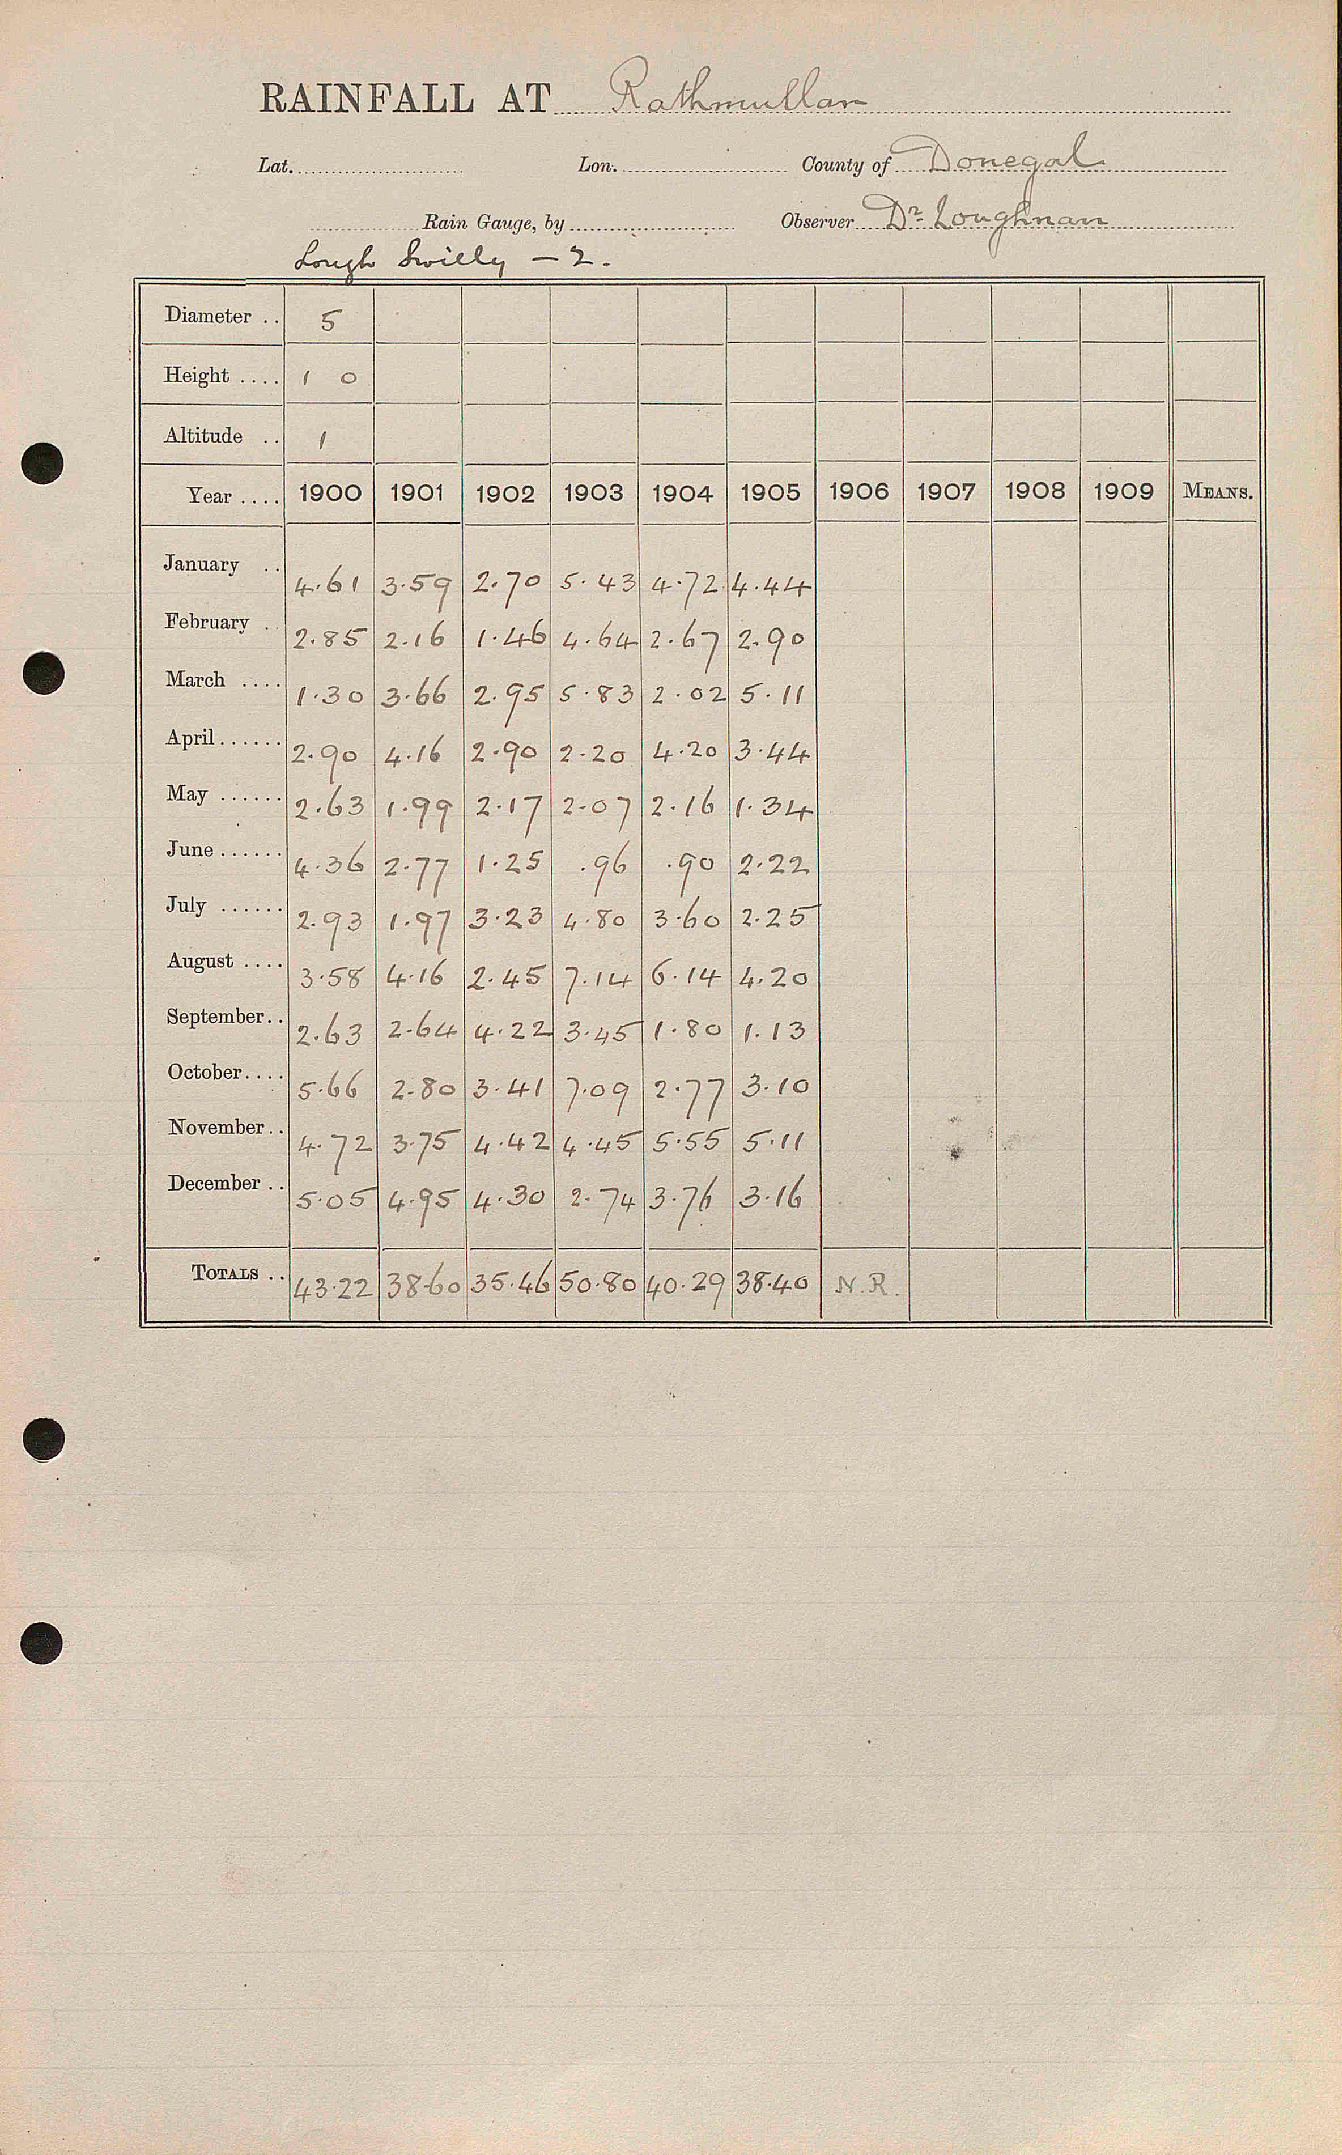 RAINFALL AT Rathmullan
Lat. Lon. County of Donegal
Rain Gauge, by Observer Dr. Loughnan
Lough Swilly - 2.
Diameter .. 5
Height .... 1 0
Altitude .. 1
Year .... 1900 1901 1902 1903 1904 1905 1906 1907 1908 1909 MEANS.
January .. 4.61 3.59 2.70 5.43 4.72 4.44
February .. 2.85 2.16 1.46 4.64 2.67 2.90
March .... 1.30 3.66 2.95 5.83 2.02 5.11
April ...... 2.90 4.16 2.90 2.20 4.20 3.44
May ...... 2.63 1.99 2.17 2.07 2.16 1.34
June ...... 4.36 2.77 1.25 .96 .90 2.22
July ...... 2.93 1.97 3.23 4.80 3.60 2.25
August .... 3.58 4.16 2.45 7.14 6.14 4.20
September.. 2.63 2.64 4.22 3.45 1.80 1.13
October.... 5.66 2.80 3.41 7.09 2.77 3.10
November.. 4.72 3.75 4.42 4.45 5.55 5.11
December .. 5.05 4.95 4.30 2.74 3.76 3.16
TOTALS .. 43.22 38.60 35.46 50.80 40.29 38.40 N.R.